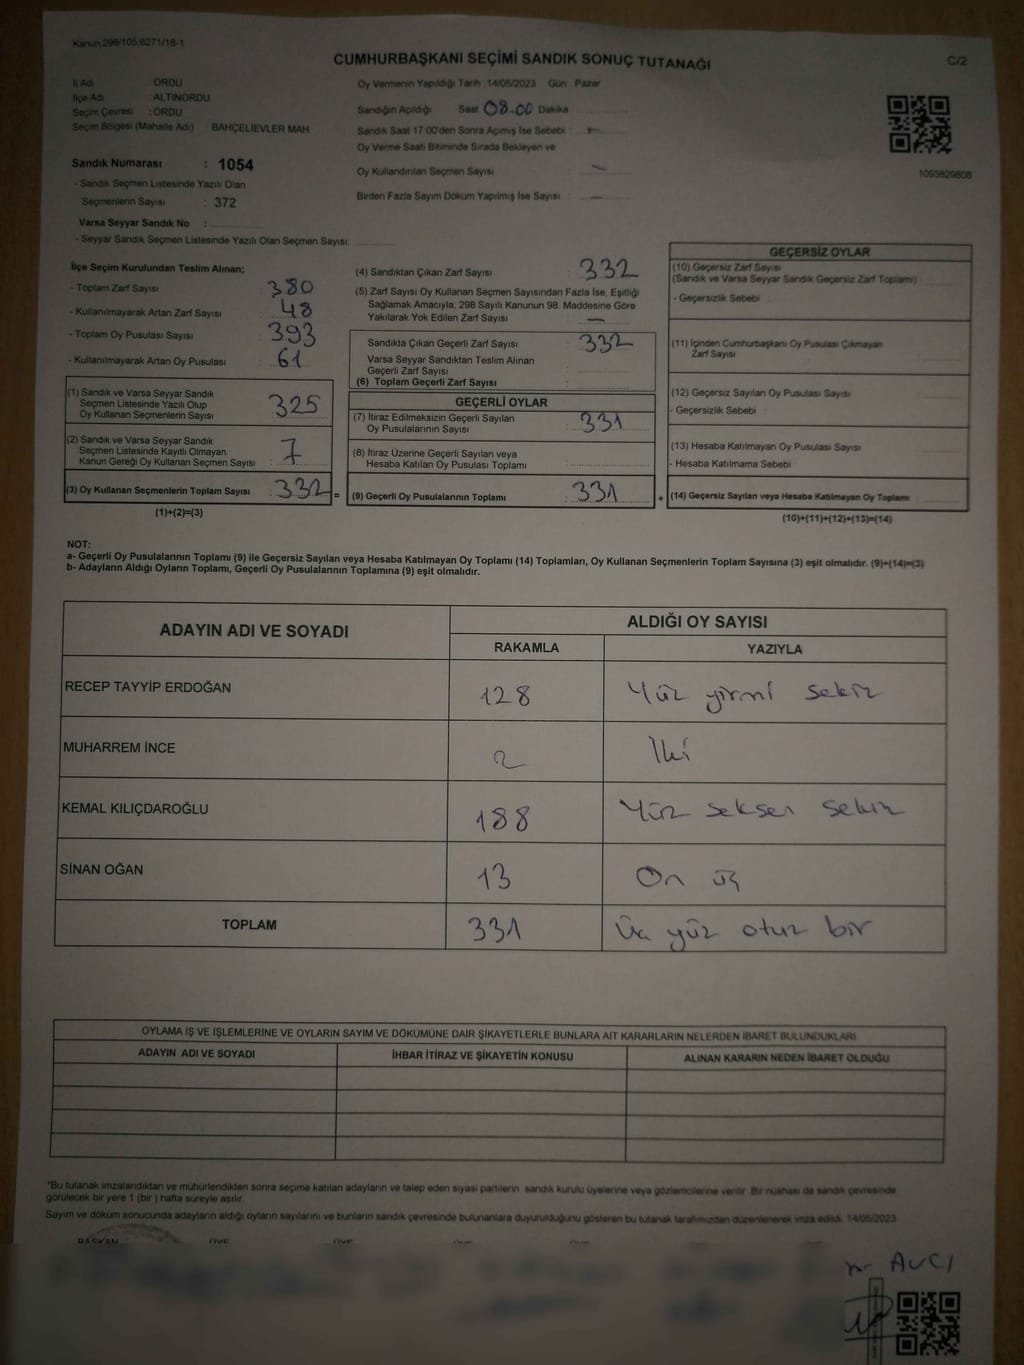 Kanun,298/105,6271/18-1
CUMHURBAŞKANI SEÇİMİ SANDIK SONUÇ TUTANAĞI
C/2
İl Adı : ORDU
İlçe Adı : ALTINORDU
Seçim Çevresi : ORDU
Seçim Bölgesi (Mahalle Adı) BAHÇELİEVLER MAH.
Sandık Numarası : 1054
- Sandık Seçmen Listesinde Yazılı Olan
Seçmenlerin Sayısı : 372
Varsa Seyyar Sandık No :
- Seyyar Sandık Seçmen Listesinde Yazılı Olan Seçmen Sayısı:
Oy Vermenin Yapıldığı Tarih :14/05/2023 Gün : Pazar
Sandığın Açıldığı Saat 08.00 Dakika
Sandık Saat 17:00'den Sonra Açımış İse Sebebi : -
Oy Verme Saati Bitiminde Sırada Bekleyen ve
Oy Kullandırılan Seçmen Sayısı : -
Birden Fazla Sayım Döküm Yapılmış İse Sayısı : -
1093829808
İlçe Seçim Kurulundan Teslim Alınan;
- Toplam Zarf Sayısı : 380
- Kullanılmayarak Artan Zarf Sayısı : 48
- Toplam Oy Pusulası Sayısı : 393
- Kullanılmayarak Artan Oy Pusulası : 61
(1) Sandık ve Varsa Seyyar Sandık
Seçmen Listesinde Yazılı Olup
Oy Kullanan Seçmenlerin Sayısı : 325
(2) Sandık ve Varsa Seyyar Sandık
Seçmen Listesinde Kayıtlı Olmayan
Kanun Gereği Oy Kullanan Seçmen Sayısı : 7
(3) Oy Kullanan Seçmenlerin Toplam Sayısı : 332 =
(1)+(2)=(3)
(4) Sandıktan Çıkan Zarf Sayısı : 332
(5) Zarf Sayısı Oy Kullanan Seçmen Sayısından Fazla İse, Eşitliği
Sağlamak Amacıyla, 298 Sayılı Kanunun 98. Maddesine Göre
Yakılarak Yok Edilen Zarf Sayısı : -
Sandıkta Çıkan Geçerli Zarf Sayısı : 332
Varsa Seyyar Sandıktan Teslim Alınan
Geçerli Zarf Sayısı :
(6) Toplam Geçerli Zarf Sayısı :
GEÇERLİ OYLAR
(7) İtiraz Edilmeksizin Geçerli Sayılan
Oy Pusulalarının Sayısı : 331
(8) İtiraz Üzerine Geçerli Sayılan veya
Hesaba Katılan Oy Pusulası Toplamı :
(9) Geçerli Oy Pusulalarının Toplamı : 331 +
GEÇERSİZ OYLAR
(10) Geçersiz Zarf Sayısı
(Sandık ve Varsa Seyyar Sandık Geçersiz Zarf Toplamı) :
- Geçersizlik Sebebi :
(11) İçinden Cumhurbaşkanı Oy Pusulası Çıkmayan
Zarf Sayısı :
(12) Geçersiz Sayılan Oy Pusulası Sayısı :
- Geçersizlik Sebebi :
(13) Hesaba Katılmayan Oy Pusulası Sayısı :
- Hesaba Katılmama Sebebi :
(14) Geçersiz Sayılan veya Hesaba Katılmayan Oy Toplamı :
(10)+(11)+(12)+(13)=(14)
NOT:
a- Geçerli Oy Pusulalarının Toplamı (9) ile Geçersiz Sayılan veya Hesaba Katılmayan Oy Toplamı (14) Toplamları, Oy Kullanan Seçmenlerin Toplam Sayısına (3) eşit olmalıdır. (9)+(14)=(3)
b- Adayların Aldığı Oyların Toplamı, Geçerli Oy Pusulalarının Toplamına (9) eşit olmalıdır.
ADAYIN ADI VE SOYADI ALDIĞI OY SAYISI
RAKAMLA YAZIYLA
RECEP TAYYİP ERDOĞAN 128 Yüz yirmi sekiz
MUHARREM İNCE 2 İki
KEMAL KILIÇDAROĞLU 188 Yüz seksen sekiz
SİNAN OĞAN 13 On üç
TOPLAM 331 Üç yüz otuz bir
OYLAMA İŞ VE İŞLEMLERİNE VE OYLARIN SAYIM VE DÖKÜMÜNE DAİR ŞİKAYETLERLE BUNLARA AİT KARARLARIN NELERDEN İBARET BULUNDUKLARI
ADAYIN ADI VE SOYADI İHBAR İTİRAZ VE ŞİKAYETİN KONUSU ALINAN KARARIN NEDEN İBARET OLDUĞU
*Bu tutanak imzalandıktan ve mühürlendikten sonra seçime katılan adayların ve talep eden siyasi partilerin sandık kurulu üyelerine veya gözlemcilerine verilir. Bir nüshası da sandık çevresinde
görülecek bir yere 1 (bir ) hafta süreyle asılır.
Sayım ve döküm sonucunda adayların aldığı oyların sayılarını ve bunların sandık çevresinde bulunanlara duyurulduğunu gösteren bu tutanak tarafımızdan düzenlenerek imza edildi. 14/05/2023
BAŞKAN ÜYE ÜYE ÜYE ÜYE
AVCI